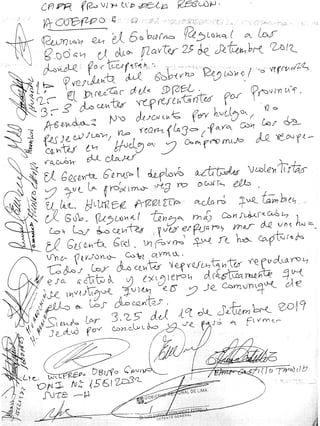 CADA PROVINCIA DE LA REGION.
ACUERDO:
Reunión en el Gobierno Regional a las
8:00 am el día Martes 25 de setiembre 2012
donde participaran:
1.- Presidente del Gobierno Regional o represente
2.- El Director de la DREL.
3.- 3 docentes representantes por Provincia.
Agenda: No descuento por huelga, no
persecusion, no reemplazo, para con los do
centes en Huelga y compromiso de recupe-
ración de clases
El Gerente General deploró actitudes violentistas
y que la próxima vez no ocurra ello.
El Lic. HILMER ARRIETA aclaró que tambien
el Gob. Regional tenga más consideración
con los docentes pues esperaron mas de una hora.
El Gerente Gral. informó que se ha capturado
una persona con arma.
Todos los docentes representantes repudiaron
esa actitud y exigieron drásticamente que
se investigue quien es y se comunique de
ello a los docentes.
Siendo las 3.25 del 19 de Setiembre 2012
se dio por concluido y se pasó a firmar
Lic. WILFREDO
DNI Nº 15612032
SUTE - H
GOBIERNO REGIONAL DE LIMA
GERENTE GENERAL
CASTILLO